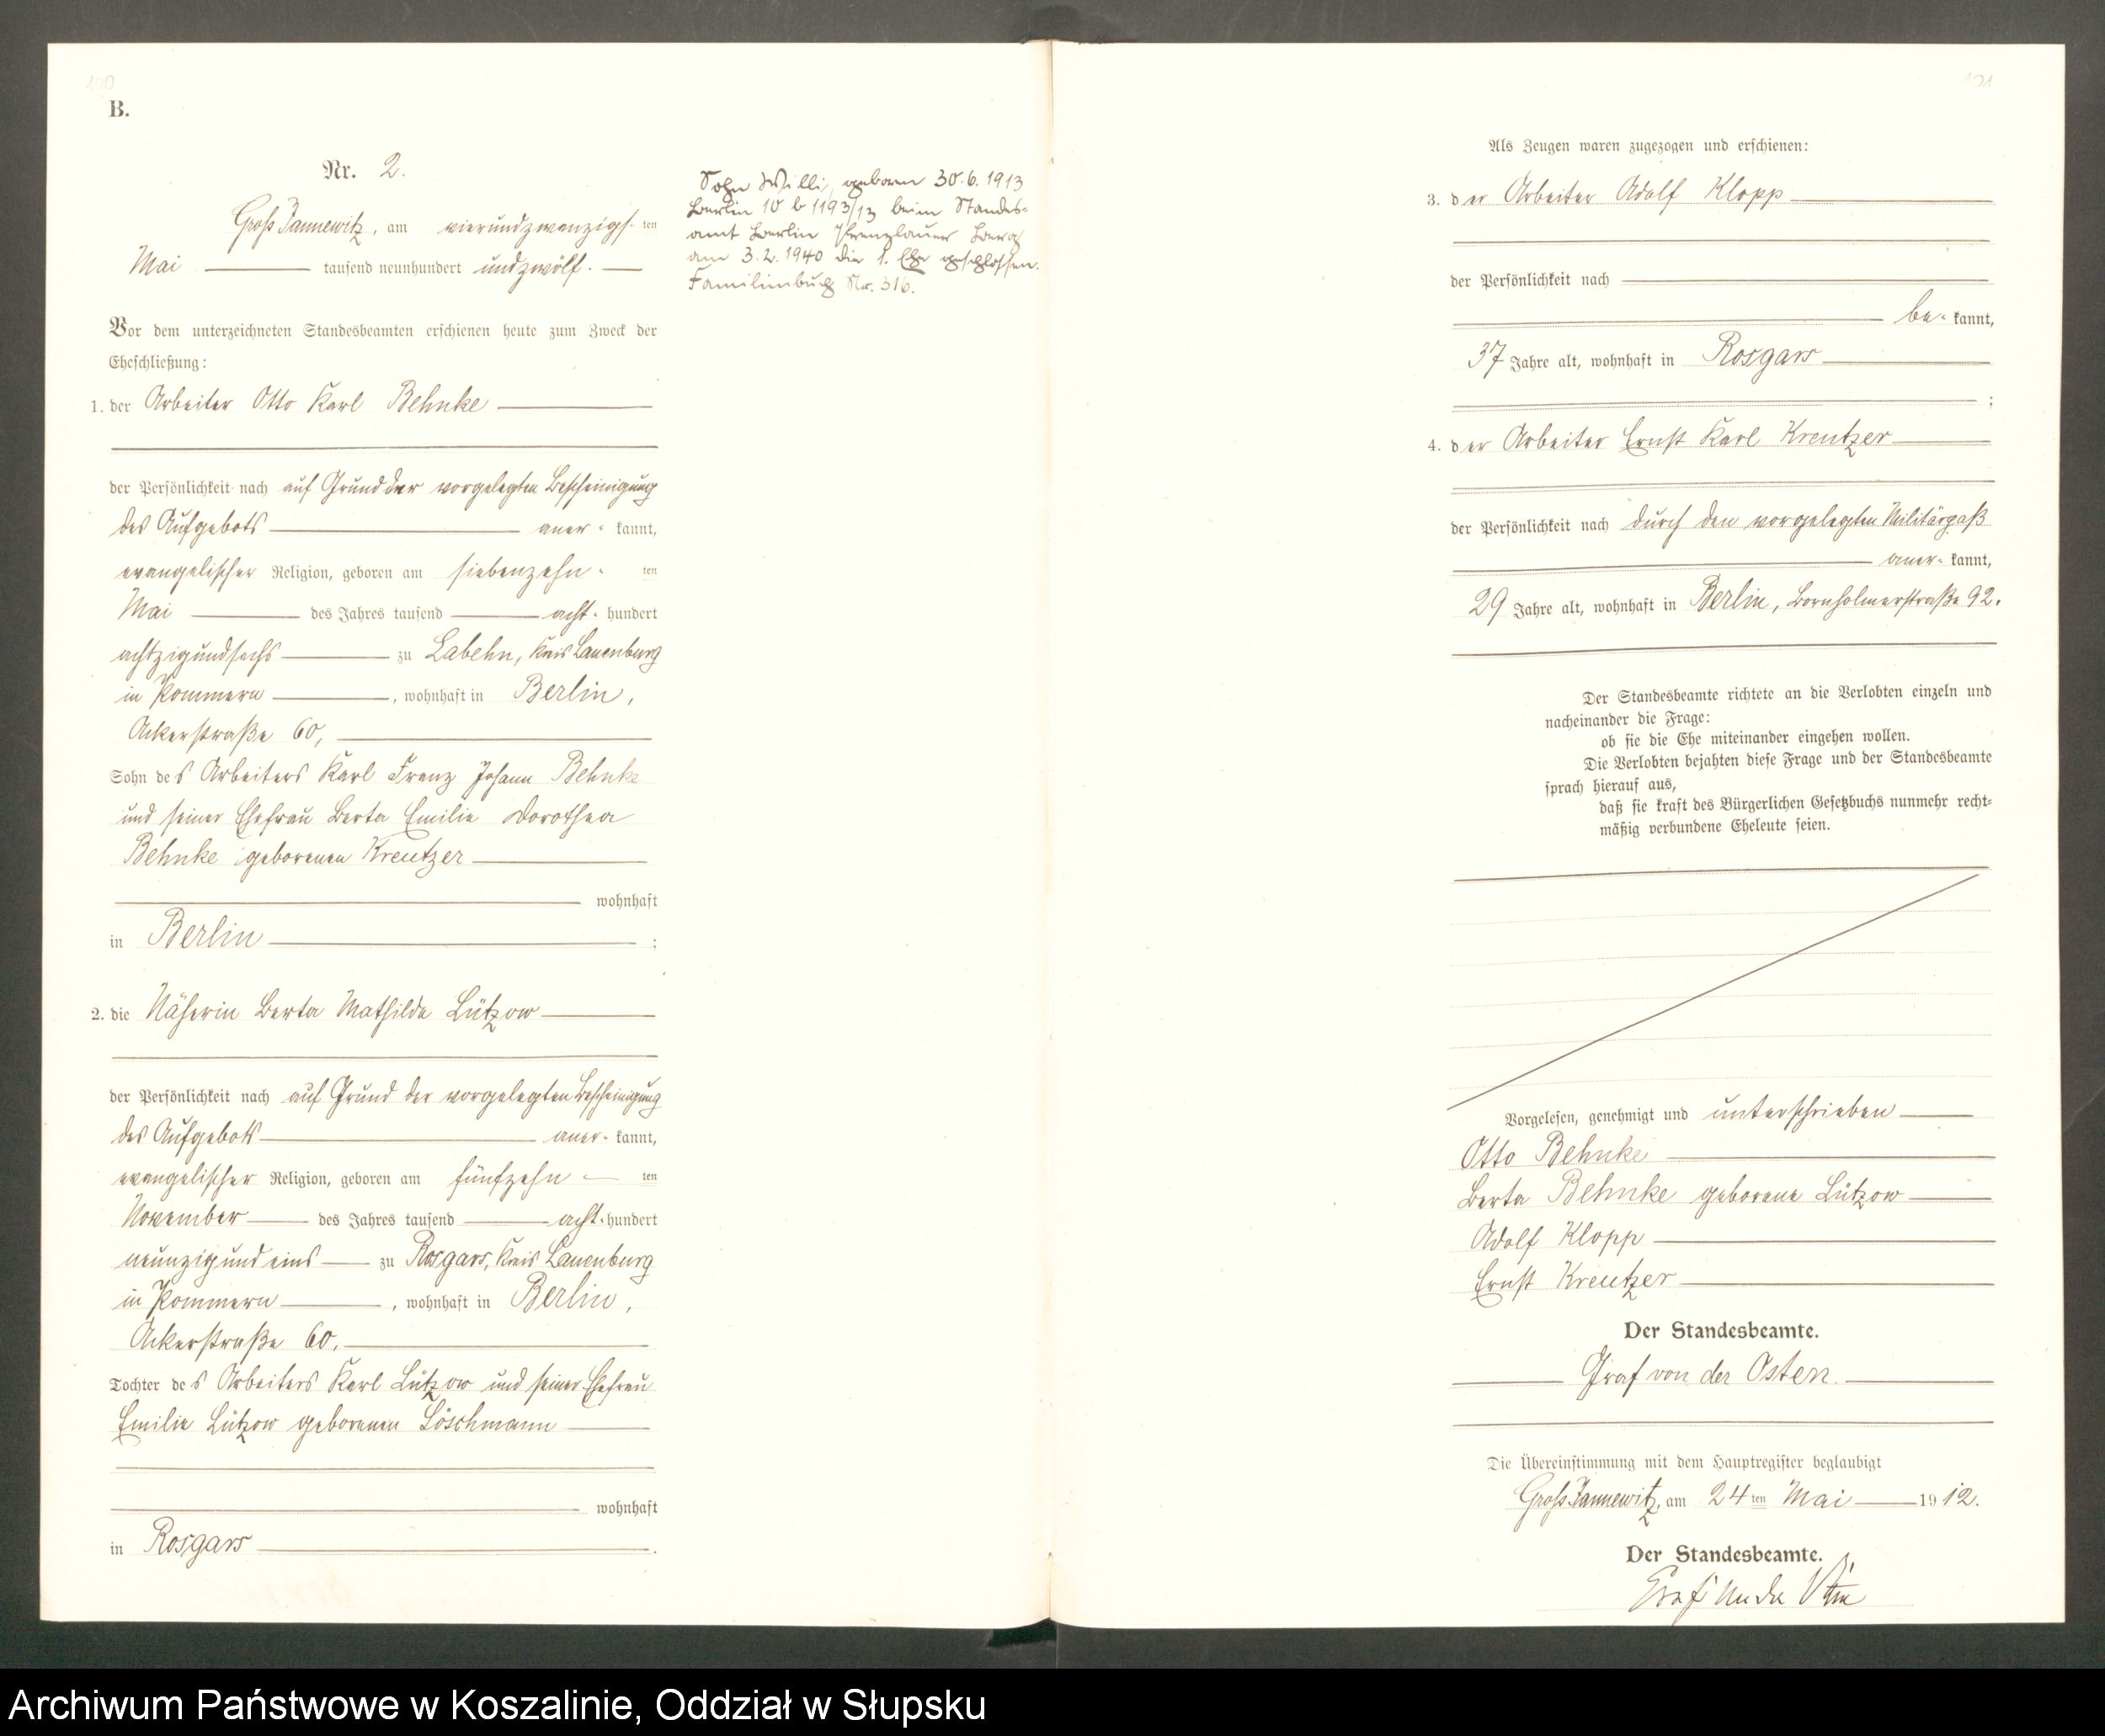 100
B.
Nr. 2.
Groß Jannewitz, am vierundzwanzigs- ten
Mai tausend neunhundert undzwölf.
Vor dem unterzeichneten Standesbeamten erschienen heute zum Zweck der
Eheschließung:
1. der Arbeiter Otto Karl Behnke
der Persönlichkeit nach auf Grund der vorgelegten Bescheinigung
des Aufgebots aner- kannt,
evangelischer Religion, geboren am siebenzehn- ten
Mai des Jahres tausend acht- hundert
achtzigundsechs zu Labehn, Kreis Lauenburg
in Pommern, wohnhaft in Berlin,
Ackerstraße 60,
Sohn des Arbeiters Karl Franz Johann Behnke
und seiner Ehefrau Berta Emilie Dorothea
Behnke geborenen Kreutzer
wohnhaft
in Berlin ;
2. die Näherin Berta Mathilde Lützow
der Persönlichkeit nach auf Grund der vorgelegten Bescheinigung
des Aufgebots aner- kannt,
evangelischer Religion, geboren am fünfzehn- ten
November des Jahres tausend acht- hundert
neunzigundeins zu Rosgars, Kreis Lauenburg
in Pommern, wohnhaft in Berlin,
Ackerstraße 60.
Tochter des Arbeiters Karl Lützow und seiner Ehefrau
Emilie Lützow geborenen Löschmann
wohnhaft
in Rosgars.
Sohn Willi, geboren 30.6.1913
Berlin 10 b 1193/13 beim Standes-
amt Berlin Prenzlauer Berg
am 3.2.1940 die 1. Ehe geschlossen.
Familienbuch Nr. 316.
101
Als Zeugen waren zugezogen und erschienen:
3. der Arbeiter Adolf Klopp
der Persönlichkeit nach
be- kannt,
37 Jahre alt, wohnhaft in Rosgars
;
4. der Arbeiter Ernst Karl Kreutzer
der Persönlichkeit nach durch den vorgelegten Militärpaß
aner- kannt,
29 Jahre alt, wohnhaft in Berlin, Bornholmerstraße 92.
Der Standesbeamte richtete an die Verlobten einzeln und
nacheinander die Frage:
ob sie die Ehe miteinander eingehen wollen.
Die Verlobten bejahten diese Frage und der Standesbeamte
sprach hierauf aus,
daß sie kraft des Bürgerlichen Gesetzbuchs nunmehr recht-
mäßig verbundene Eheleute seien.
Vorgelesen, genehmigt und unterschrieben
Otto Behnke
Berta Behnke geborene Lützow
Adolf Klopp
Ernst Kreutzer
Der Standesbeamte.
Graf von der Osten.
Die Übereinstimmung mit dem Hauptregister beglaubigt
Groß Jannewitz, am 24ten Mai 1912.
Der Standesbeamte.
Graf von der Osten
Archiwum Państwowe w Koszalinie, Oddział w Słupsku